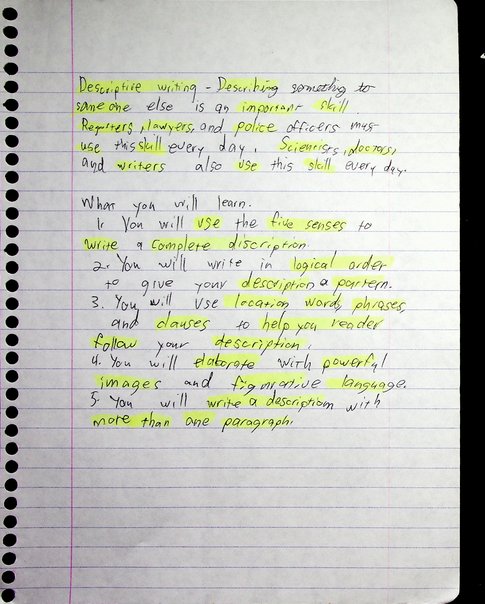 Descriptive writing - Describing something to
someone else is an important skill.
Reporters, lawyers, and police officers must
use this skill every day. Scientists, doctors,
and writers also use this skill every day.
What you will learn.
1. You will use the five senses to
write a complete discription.
2. You will write in logical order
to give your description a pattern.
3. You will use location words, phrases,
and clauses to help you reader
follow your description.
4. You will elaborate with powerful
images and figurative language.
5. You will write a description with
more than one paragraph.